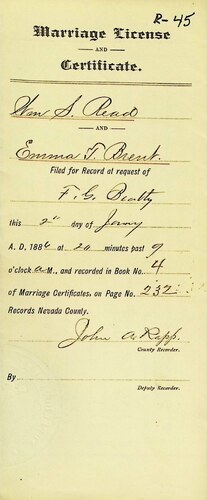 R-45
Marriage License
AND
Certificate.
Wm S. Read
AND
Emma T. Brent.
Filed for Record at request of
F. G. Beatty
this 2" day of Jany
A. D. 1886 at 20 minutes past 9
o'clock A M, and recorded in Book No. 4
of Marriage Certificates, on Page No. 232
Records Nevada County.
John A. Rapp.
County Recorder.
By
Deputy Recorder.